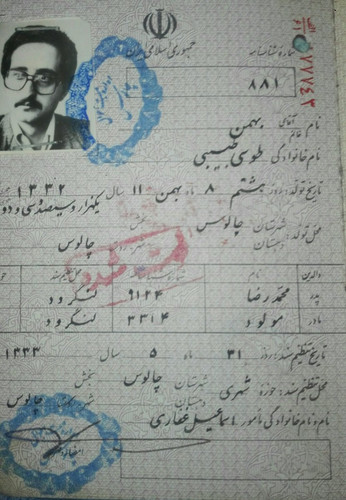 جمهوری اسلامی ایران
شماره شناسنامه
۸۸۱
نام آقای خانم بهمن
نام خانوادگی طوسی طبیبی
تاریخ تولد: روز هشتم ۸ ماه بهمن ۱۱ سال ۱۳۳۲
یکهزار و سیصد و سی و دو
محل تولد: شهرستان دهستان چالوس بخش چالوس
والدین نام شماره شناسنامه محل تنظیم سند
پدر محمدرضا ۹۱۲۴ لنگرود
مادر مولود ۳۳۱۴ لنگرود
تاریخ تنظیم سند: روز ۳۱ ماه ۵ سال ۱۳۳۳
محل تنظیم سند: حوزه شهری شهرستان دهستان چالوس بخش چالوس
نام و نام خانوادگی مأمور اسماعیل غفاری